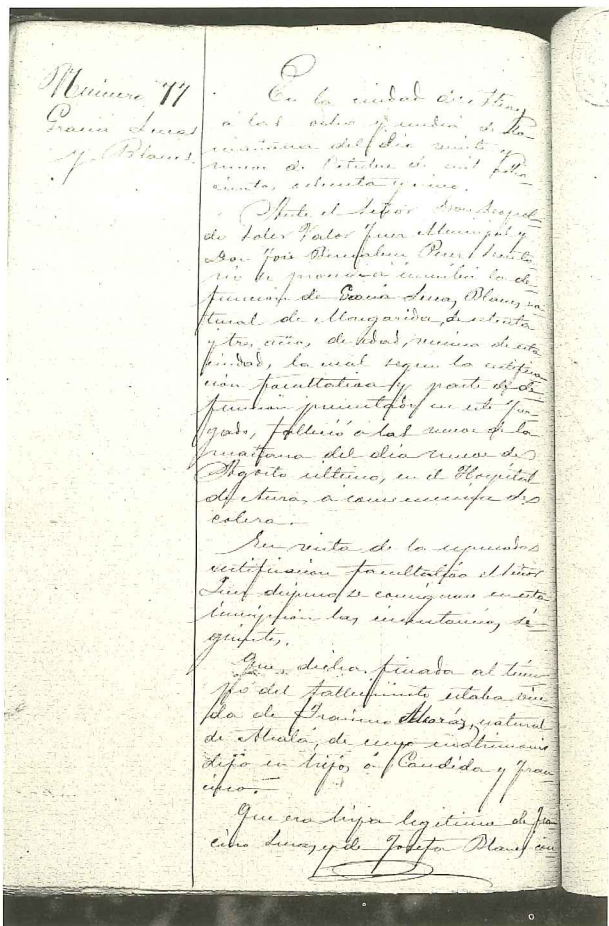 Número 77
Gracia Lucas
y Blanes.
En la ciudad de Alcoy
a las ocho y media de la
mañana del dia veinte y
nueve de Octubre de mil ocho
cientos ochenta y cinco.
Ante el Señor Don Leopol-
do Soler Valor Juez Municipal y
Don José Bernabeu Perez Secreta-
rio se procede á inscribir la de-
funcion de Gracia Lucas Blanes, na-
tural de Margarida, de setenta
y tres años, de edad, vecina de esta
ciudad, la cual segun la certifica-
ción facultativa y parte de de-
función presentado en este Juz-
gado, falleció á las nueve de la
mañana del dia nueve de
Agosto ultimo, en el Hospital
de a consecuencia de
colera.
En vista de la espresada
certificación facultativa el Señor
Juez dispuso se consignase en esta
inscripción las circunstancias si-
guientes.
Que dicha finada al tiem-
po del fallecimiento estaba viu-
da de Francisco natural
de Alcalá, de cuyo matrimonio
dejó en hijos á Candida y Fran-
cisco.
Que era hija legitima de Fran-
cisco Lucas y de Josefa Blanes con